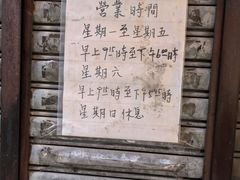 營業時間
星期一至星期五
早上9:15時至下午6:00時
星期六
早上9:15時至下午5:15時
星期日休息